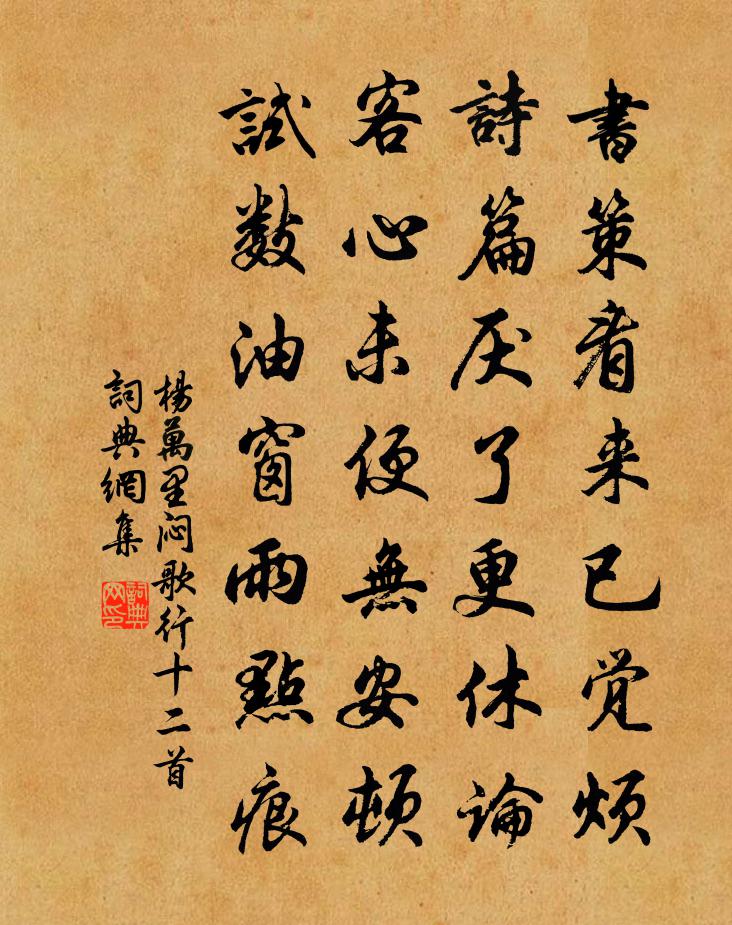 書策看来已覚煩
詩篇厌了更休論
客心未便無安頓
試数油窗雨點痕
楊萬里闷歌行十二首
詞典網集
詞典網印